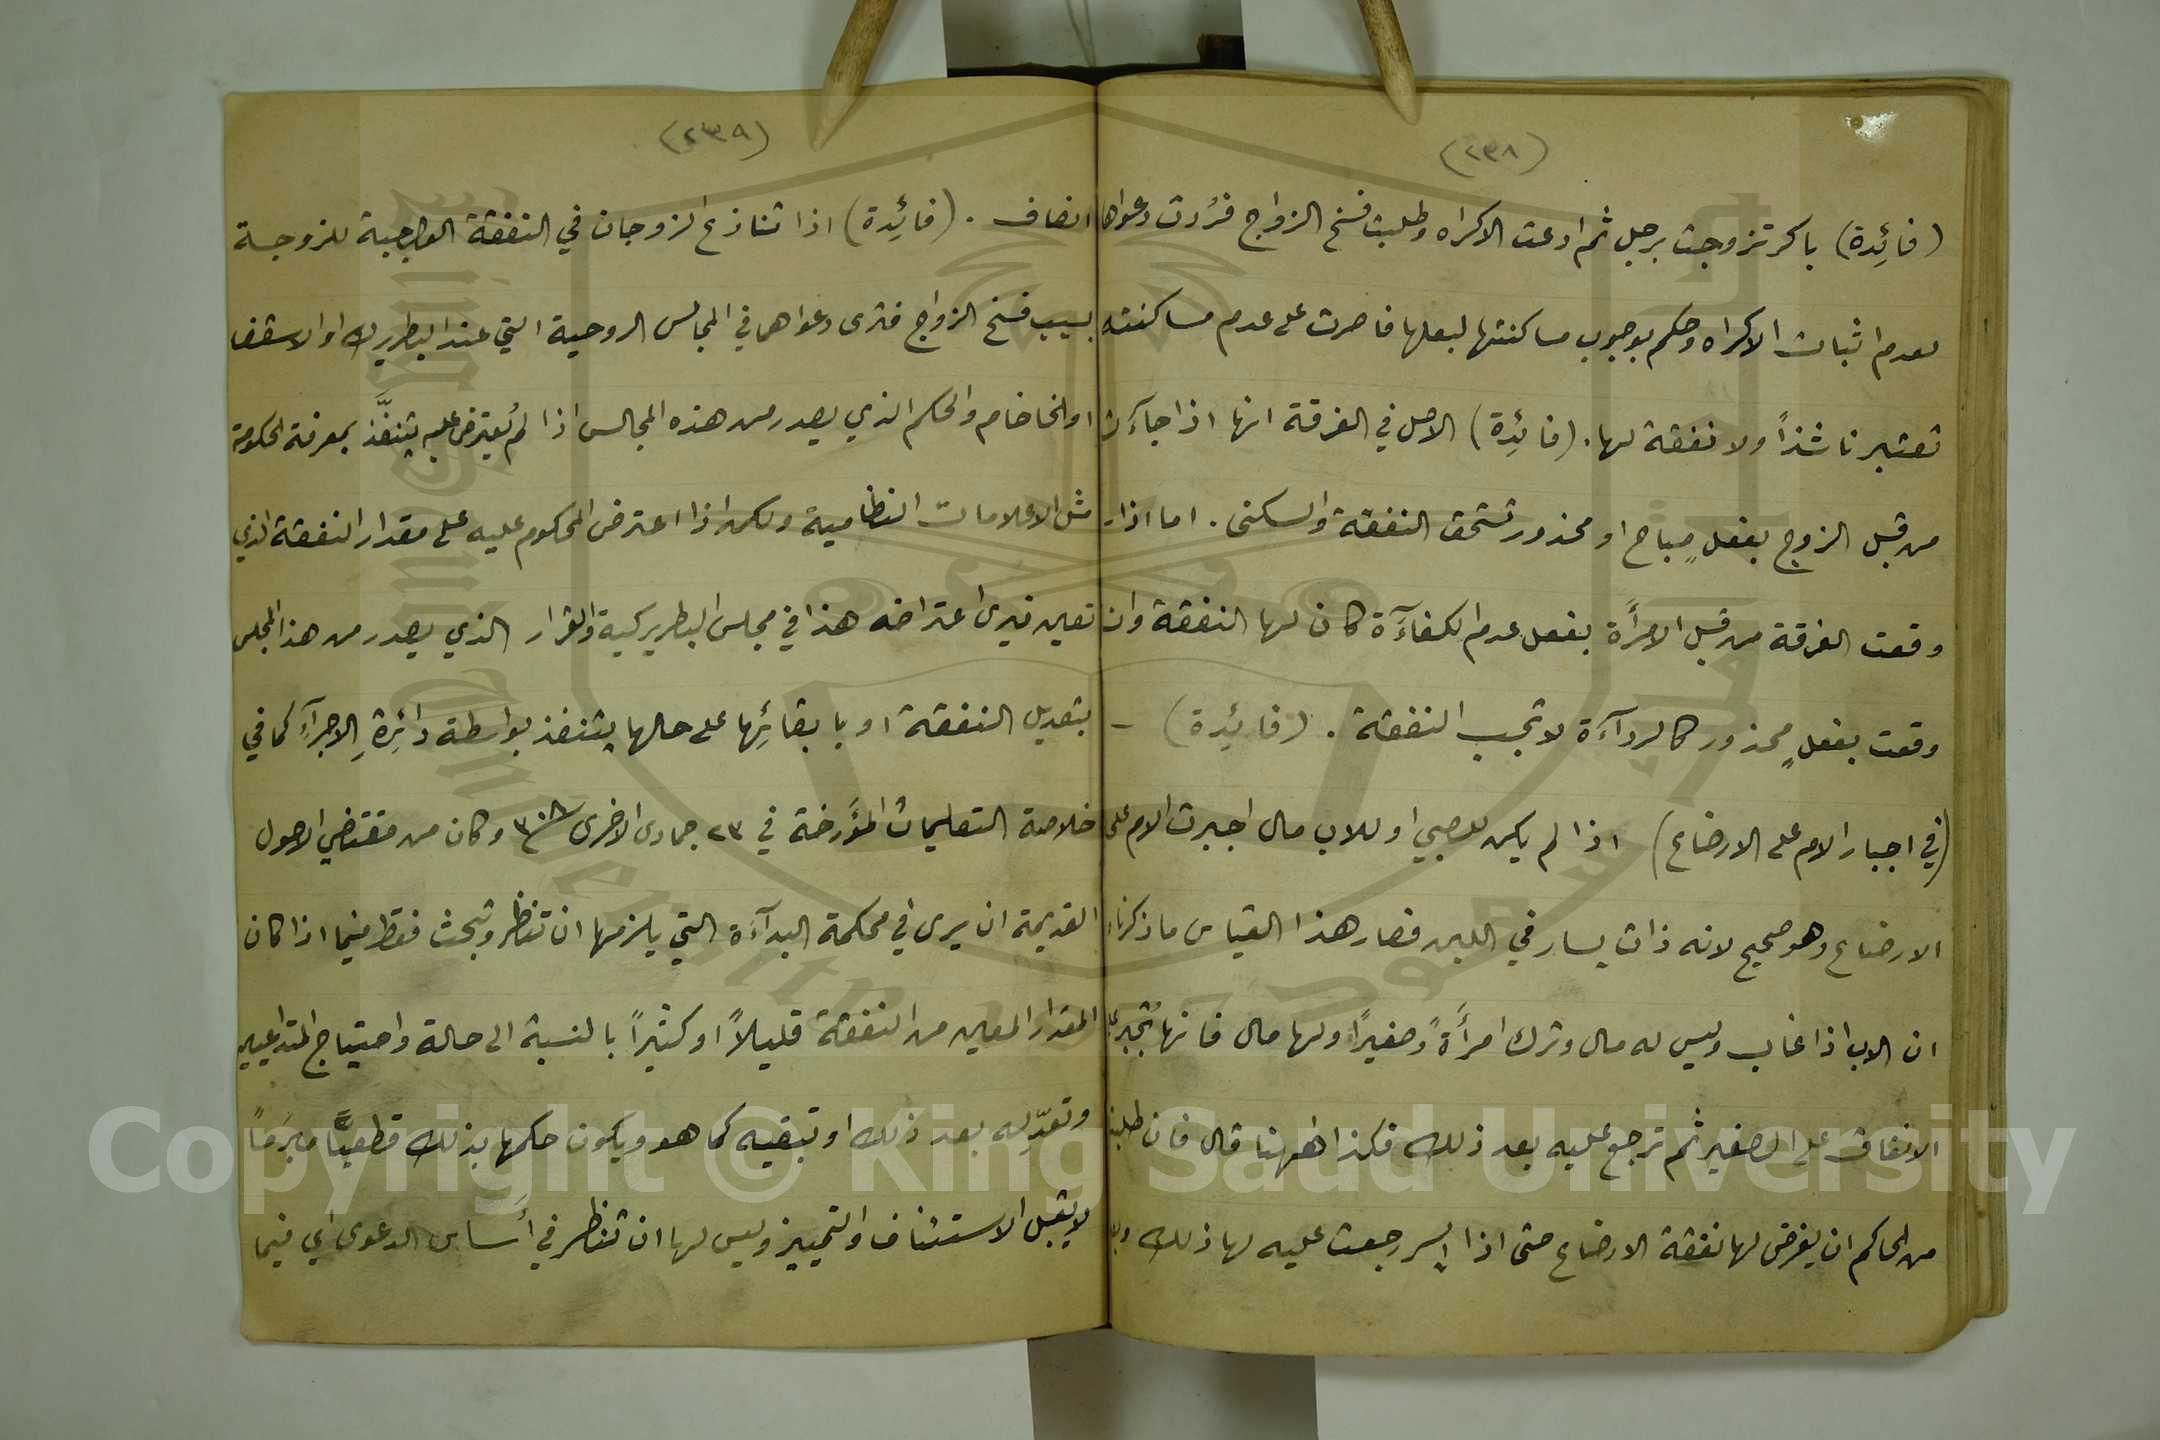 (٢٣٨)
(فائِدة) باكر تزوجت برجل ثم ادعت الاكراه وطلبت فسخ الزواج فرُدت دعواها
لعدم اثبات الاكراه وحكم بوجوب مساكنتها لبعلها فاصرت على عدم مساكنته
تعتبر ناشذاً ولا نفقة لها. (فائِدة) الاصل في الفرقة انها اذا جاءَت
من قبل الزوج بفعلٍ مباح او محذور تستحق النفقة والسكنى. اما اذا
وقعت الفرقة من قبل الامرأَة بفعل عدم الكفاءَة كان لها النفقة وان
وقعت بفعلٍ محذور كالردآءَة لا تجب النفقة. (فائِدة) –
(في اجبار الام على الارضاع) اذا لم يكن للصبي او للاب مال اجبرت الام على
الارضاع وهو صحيح لانه ذات يسار في اللبن فصار هذا القياس ما ذكرناه
ان الاب اذا غاب وليس له مال وترك امرأَةً وصغيراً ولها مال فانها تُجبر على
الانفاق على الصغير ثم ترجع عليه بعد ذلك فكذا ههنا قال فان طلبت
من الحاكم ان يفرض لها نفقة الارضاع حتى اذا ايسر رجعت عليه لها ذلك
(٢٣٩)
انصاف. (فائِدة) اذا تنازع الزوجان في النفقة الواجبة للزوجة
بسبب فسخ الزواج فترى دعواهما في المجالس الروحية التي عند البطريرك او الاسقف
او الخاخام والحكم الذي يصدر من هذه المجالس اذا لم يُعترض عليه يتنفَّذ بمعرفة الحكومة
مثل الاعلامات النظامية ولكن اذا اعترض المحكوم عليه على مقدار النفقة الذي
تعين فيرى اعتراضه هذا في مجلس البطريركية والقرار الذي يصدر من هذا المجلس
بتعديل النفقة او بابقائِها على حالها يتنفذ بواسطة دائِرةِ الاجرآءِ كما في
خلاصة التعليمات المؤَرخة في ٢٣ جمادى الاخرى ٣٠٨ وكان من مقتضي الاصول
القديمة ان يرى في محكمة البدآءَة التي يلزمها ان تنظر وتبحث فقط فيما اذا كان
المقدار المعين من النفقة قليلاً او كثيراً بالنسبة الى حالة واحتياج المتداعيين
وتعدّله بعد ذلك او تبقيه كما هو ويكون حكمها بذلك قطعيًّا مبرَماً
لا يقبل الاستئناف والتمييز وليس لها ان تنظر في أَساس الدعوى اي فيما
Copyright © King Saud University